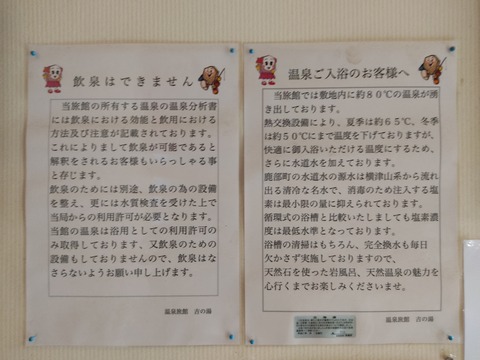 飲泉はできません
当旅館の所有する温泉の温泉分析書
には飲泉における効能と飲用における
方法及び注意が記載されております。
これによりまして飲泉が可能であると
解釈をされるお客様もいらっしゃる事
と存じます。
飲泉のためには別途、飲泉の為の設備
を整え、更には水質検査を受けた上で
当局からの利用許可が必要となります。
当館の温泉は浴用としての利用許可の
み取得しております、又飲泉のための
設備もしておりませんので、飲泉はな
さらないようお願い申し上げます。
温泉旅館 吉の湯
温泉ご入浴のお客様へ
当旅館では敷地内に約80℃の温泉が湧
き出しております。
熱交換設備により、夏季は約65℃、冬季
は約50℃にまで温度を下げておりますが、
快適に御入浴いただける温度にするため、
さらに水道水を加えております。
鹿部町の水道水の源水は横津山系から流れ
出る清冷な名水で、消毒のため注入する塩
素は最小限の量に抑えられております。
循環式の浴槽と比較いたしましても塩素濃
度は最低水準となっております。
浴槽の清掃はもちろん、完全換水も毎日
欠かさず実施しておりますので、
天然石を使った岩風呂、天然温泉の魅力を
心行くまでお楽しみくださいませ。
温泉旅館 吉の湯